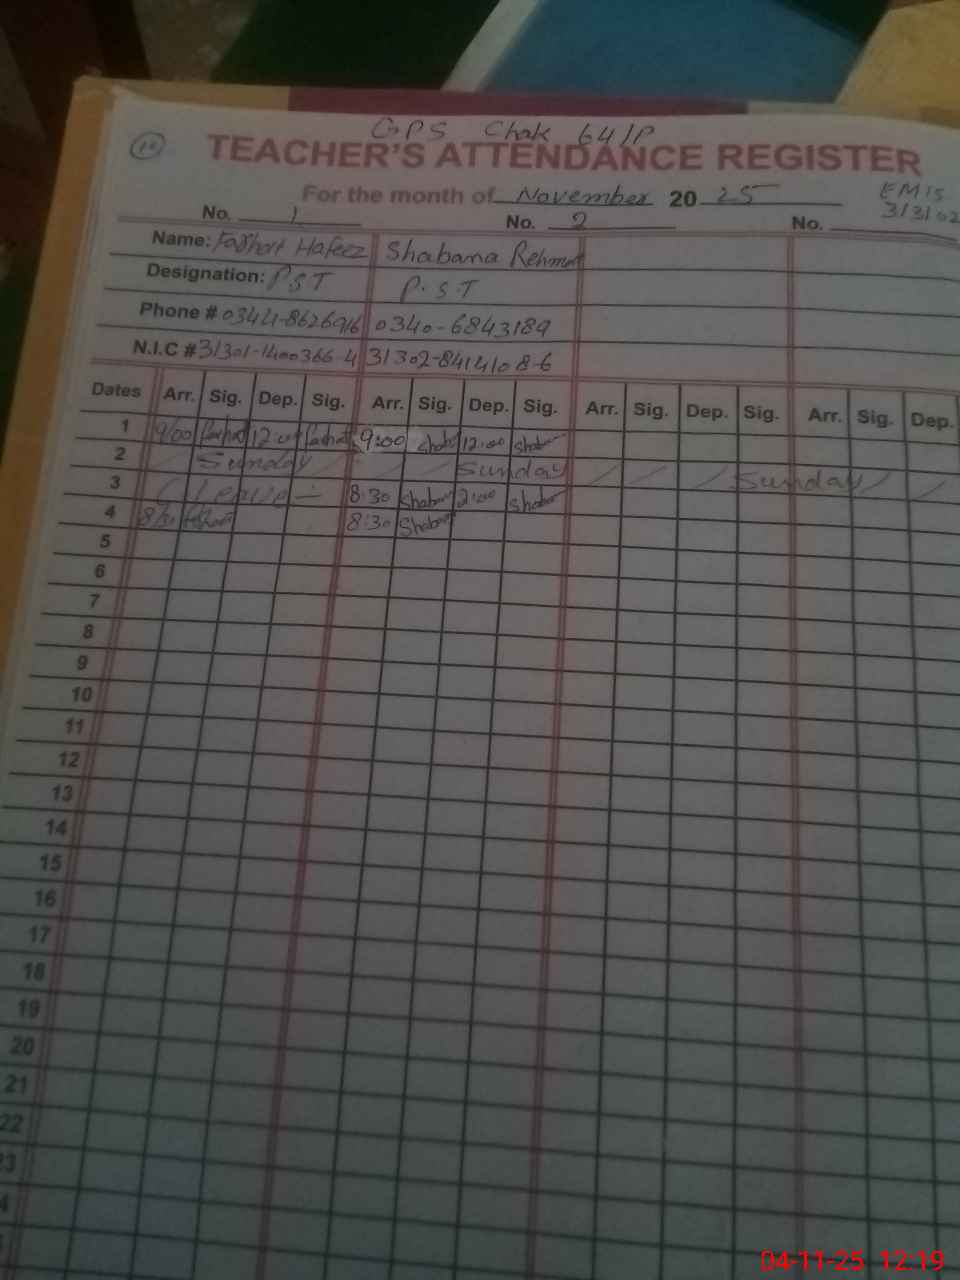 10
GPS Chak 64/P
TEACHER'S ATTENDANCE REGISTER
For the month of November 20 25
EMIS
31
No. 1 No. 2 No.
Name: Hafeez Shabana Rehmat
Designation: PST P.S.T
Phone # 0344-8626916 0340-6843189
N.I.C # 31301-1400366-4 31302-8414108-6
Dates Arr. Sig. Dep. Sig. Arr. Sig. Dep. Sig. Arr. Sig. Dep. Sig. Arr. Sig. Dep.
1 9:00 farhat 12:00 farhat 9:00 Shaban 12:00 Shaban
2 Sunday Sunday Sunday
3 C/Leave 8:30 Shabana 2:00 Shaban
4 8:30 8:30 Shabana
5
6
7
8
9
10
11
12
13
14
15
16
17
18
19
20
21
22
23
04-11-25 12:19